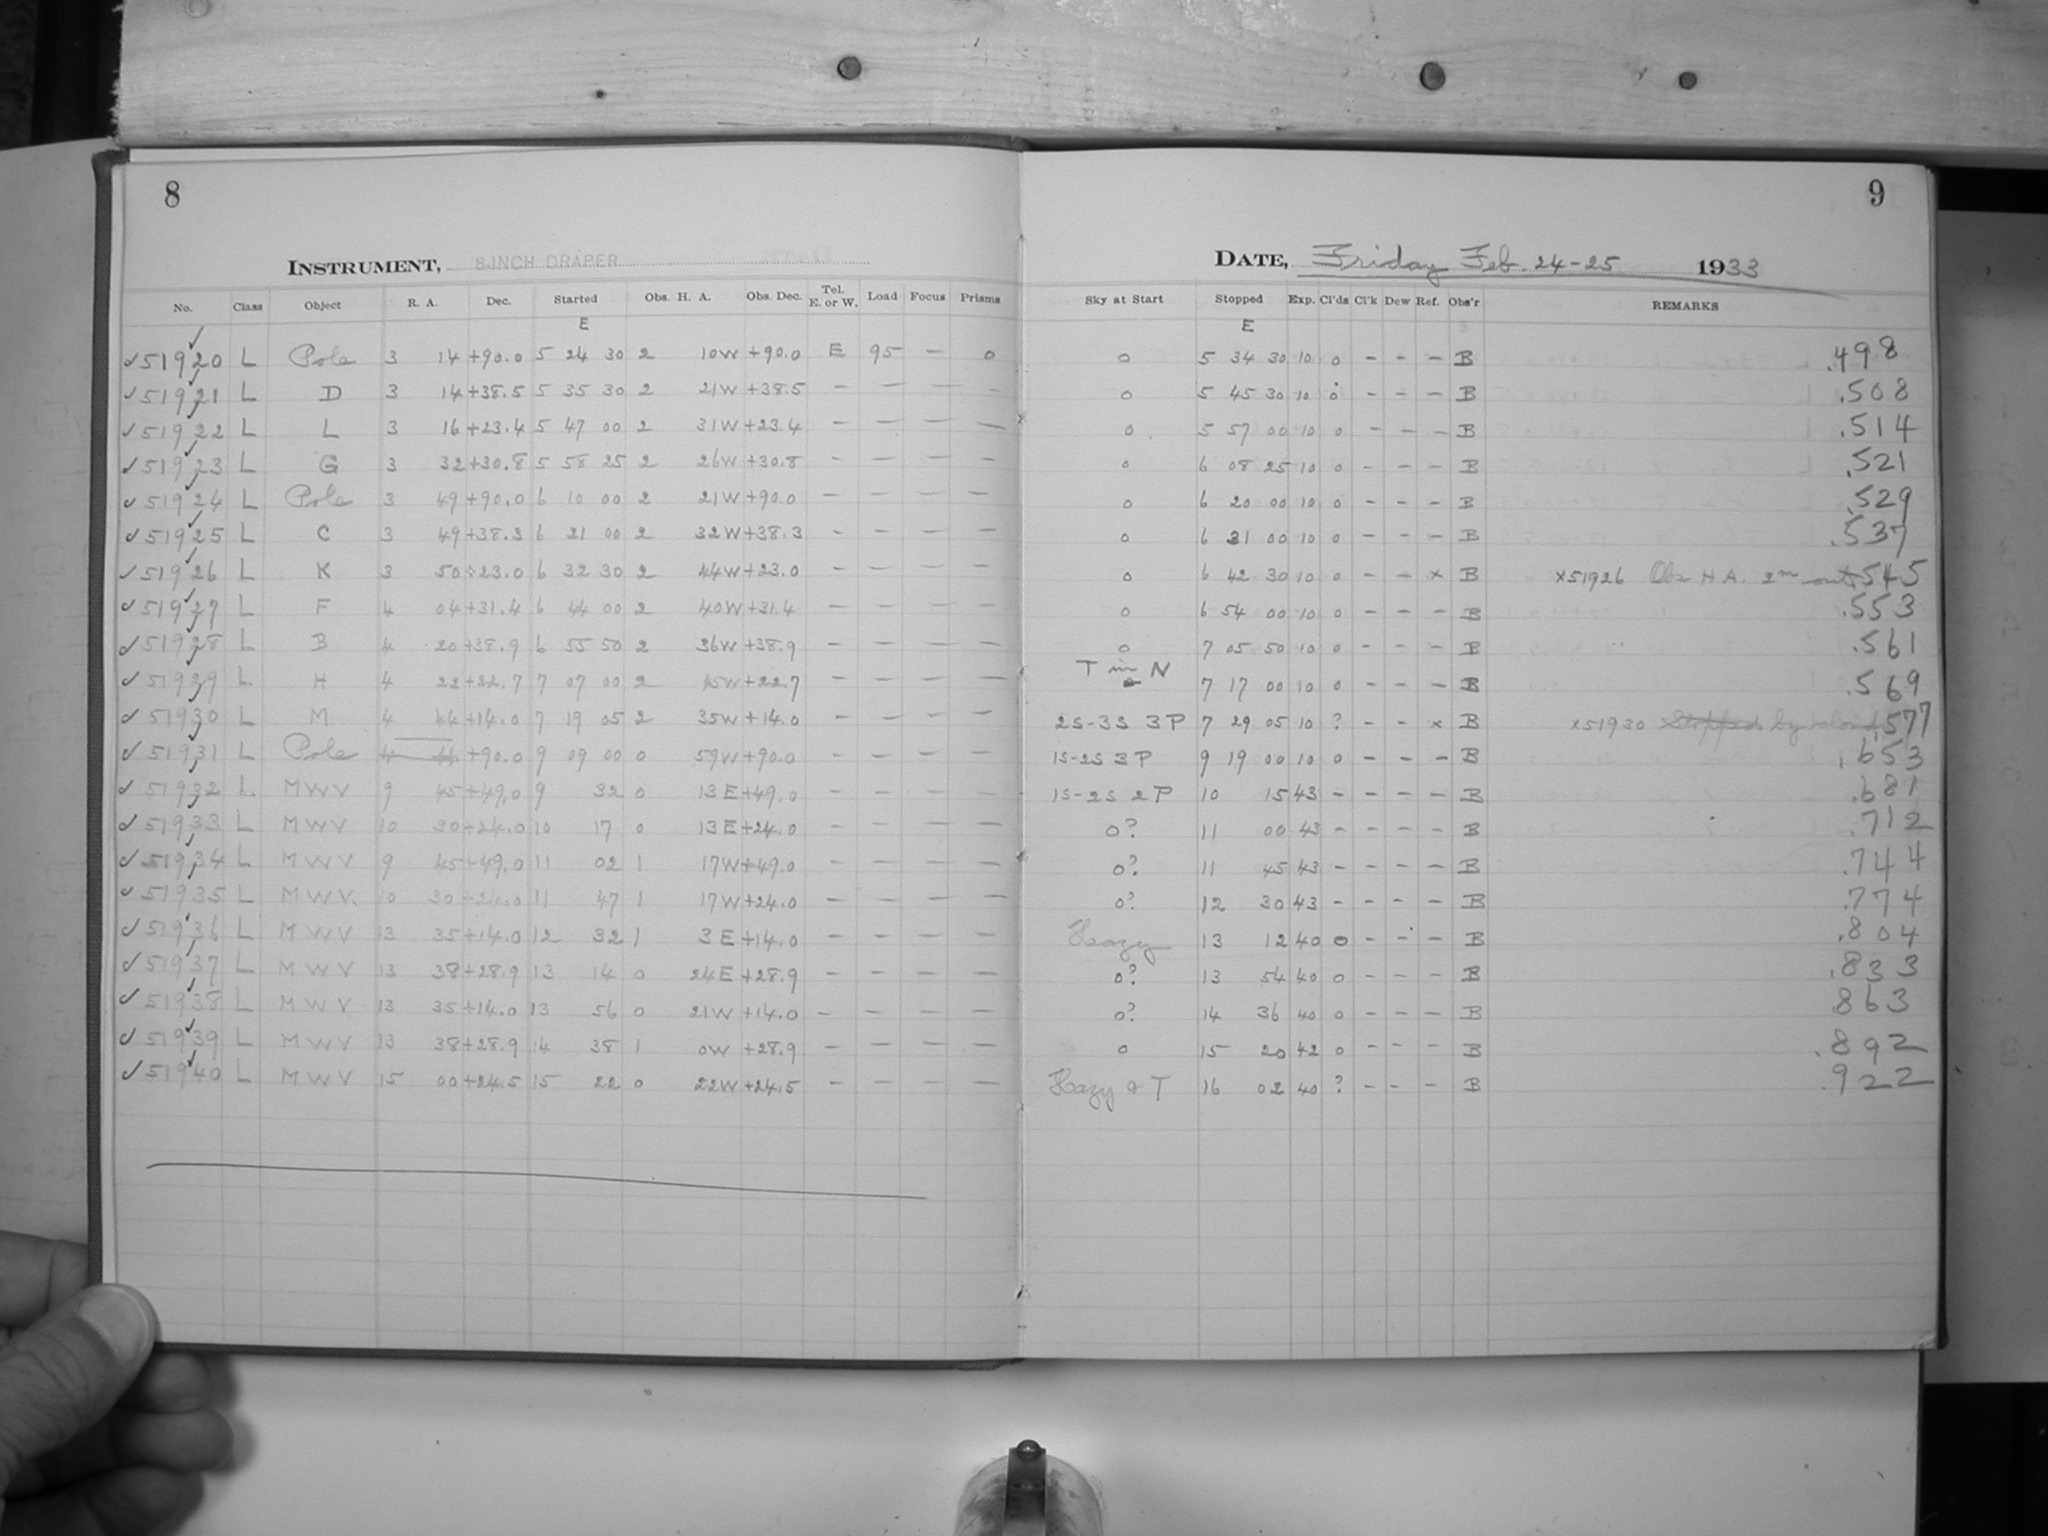 8
9
INSTRUMENT, 8 INCH DRAPER
DATE, Friday Feb. 24-25 1933
No. Class Object R. A. Dec. Started Obs. H. A. Obs. Dec. Tel. E. or W. Load Focus Prisms Sky at Start Stopped Exp. Cl'ds Cl'k Dew Ref. Obs'r REMARKS
E E
51920 L Pole 3 14 +90.0 5 24 30 2 10W +90.0 E 95 - 0 0 5 34 30 10 0 - - - B .498
51921 L D 3 14 +38.5 5 35 30 2 21W +38.5 - - - - 0 5 45 30 10 0 - - - B .508
51922 L L 3 16 +23.4 5 47 00 2 31W +23.4 - - - - 0 5 57 00 10 0 - - - B .514
51923 L G 3 32 +30.8 5 58 25 2 26W +30.8 - - - - 0 6 08 25 10 0 - - - B .521
51924 L Pole 3 49 +90.0 6 10 00 2 21W +90.0 - - - - 0 6 20 00 10 0 - - - B .529
51925 L C 3 49 +38.3 6 21 00 2 32W +38.3 - - - - 0 6 31 00 10 0 - - - B .537
51926 L K 3 50 +23.0 6 32 30 2 44W +23.0 - - - - 0 6 42 30 10 0 - - x B x51926 Obs H A. 2m out .545
51927 L F 4 04 +31.4 6 44 00 2 40W +31.4 - - - - 0 6 54 00 10 0 - - - B .553
51928 L B 4 20 +38.9 6 55 50 2 36W +38.9 - - - - 0 7 05 50 10 0 - - - B .561
51929 L H 4 22 +22.7 7 07 00 2 45W +22.7 - - - - T in N 7 17 00 10 0 - - - B .569
51930 L M 4 44 +14.0 7 19 05 2 35W +14.0 - - - - 2S-3S 3P 7 29 05 10 ? - - x B x51930 Stopped by clouds .577
51931 L Pole 4 44 +90.0 9 09 00 0 59W +90.0 - - - - 1S-2S 3P 9 19 00 10 0 - - - B .653
51932 L MWV 9 45 +49.0 9 32 0 13E +49.0 - - - - 1S-2S 2P 10 15 43 - - - - B .681
51933 L MWV 10 30 +24.0 10 17 0 13E +24.0 - - - - 0? 11 00 43 - - - - B .712
51934 L MWV 9 45 +49.0 11 02 1 17W +49.0 - - - - 0? 11 45 43 - - - - B .744
51935 L MWV. 10 30 +24.0 11 47 1 17W +24.0 - - - - 0? 12 30 43 - - - - B .774
51936 L MWV 13 35 +14.0 12 32 1 3E +14.0 - - - - Hazy 13 12 40 0 - - - B .804
51937 L MWV 13 38 +28.9 13 14 0 24E +28.9 - - - - 0? 13 54 40 0 - - - B .833
51938 L MWV 13 35 +14.0 13 56 0 21W +14.0 - - - - 0? 14 36 40 0 - - - B 863
51939 L MWV 13 38 +28.9 14 38 1 0W +28.9 - - - - 0 15 20 42 0 - - - B .892
51940 L MWV 15 00 +24.5 15 22 0 22W +24.5 - - - - Hazy & T 16 02 40 ? - - - B .922